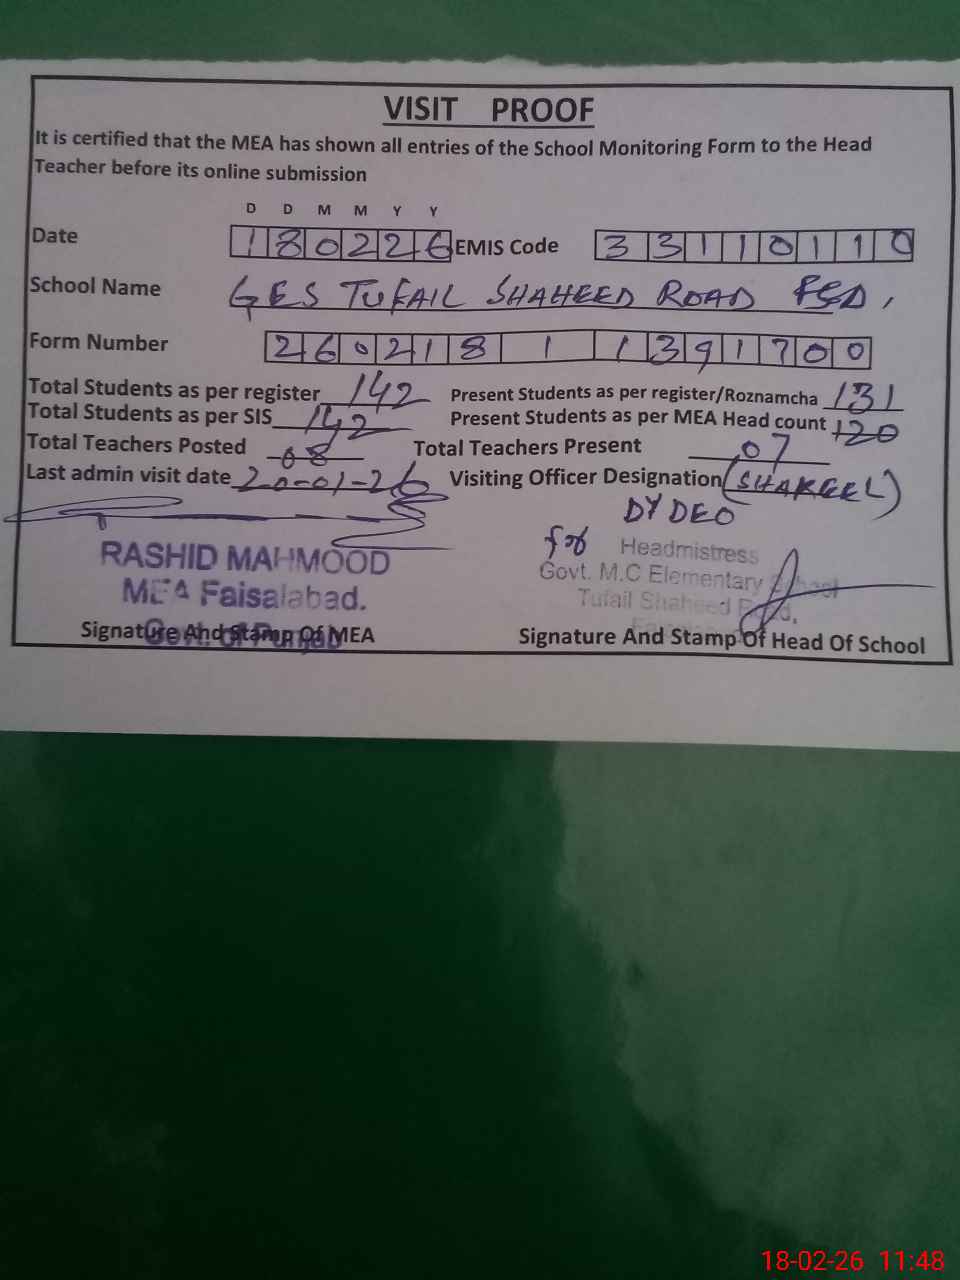 VISIT PROOF
It is certified that the MEA has shown all entries of the School Monitoring Form to the Head
Teacher before its online submission
D D M M Y Y
Date 180226 EMIS Code 33110110
School Name GES TUFAIL SHAHEED ROAD FSD,
Form Number 260218 1 1391700
Total Students as per register 142 Present Students as per register/Roznamcha 131
Total Students as per SIS 142 Present Students as per MEA Head count 120
Total Teachers Posted 08 Total Teachers Present 07
Last admin visit date 20-01-26 Visiting Officer Designation (SHAKEEL)
DY DEO
RASHID MAHMOOD
MEA Faisalabad.
Govt. of Punjab
Signature And Stamp Of MEA
for Headmistress
Govt. M.C Elementary School
Tufail Shaheed Road,
Signature And Stamp Of Head Of School
18-02-26 11:48